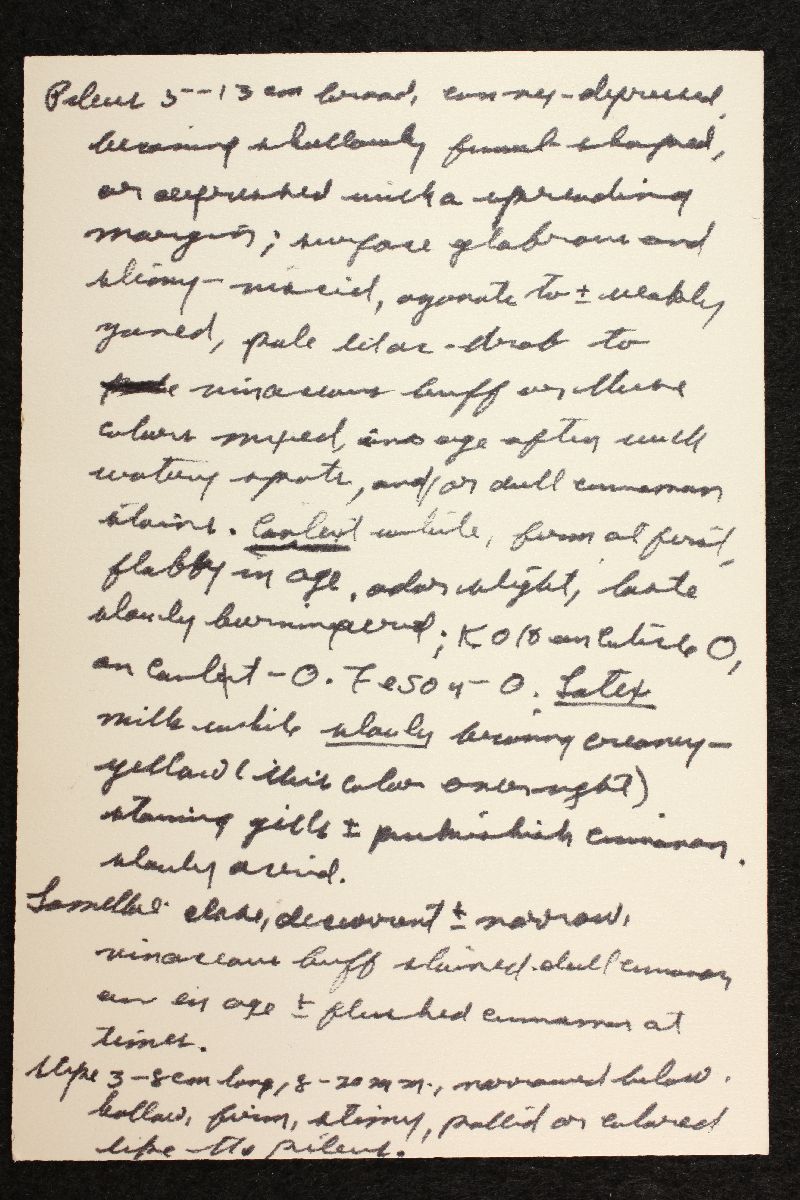 Pileus 5-13 cm broad, convex-depressed,
becoming shallowly funnel shaped,
or depressed with a spreading
margin; surface glabrous and
slimy-viscid, azonate to ± weakly
zoned, pale lilac-drab to
vinaceous buff or these
colors mixed, in age often with
watery spots, and/or dull cinnamon
stains. Context white, firm at first,
flabby in age, odor slight, taste
slowly burning acrid; KOH on cuticle O,
on context - O. FeSO4 - O. Latex
milk white slowly becoming creamy-
yellow (this color overnight)
staining gills ± pinkish cinnamon.
slowly acrid.
Lamellae close, decurrent ± narrow,
vinaceous buff stained dull cinnamon
or in age ± flushed cinnamon at
times.
Stipe 3-8 cm long, 8-20 mm., narrowed below.
hollow, firm, slimy, pallid or colored
like the pileus.